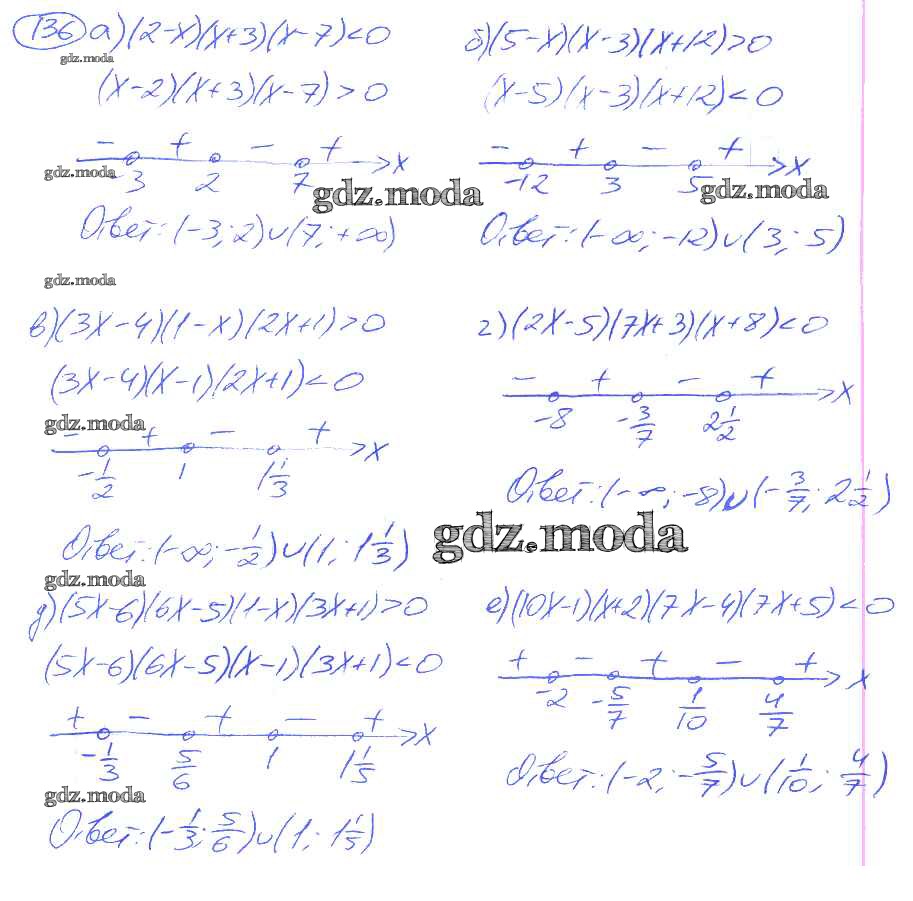 136 а) (2-x)(x+3)(x-7)<0
gdz.moda
(x-2)(x+3)(x-7)>0
- + - + x
-3 2 7
gdz.moda
gdz.moda
Ответ: (-3; 2)∪(7; +∞)
б) (5-x)(x-3)(x+12)>0
(x-5)(x-3)(x+12)<0
- + - + x
-12 3 5
gdz.moda
Ответ: (-∞; -12)∪(3; 5)
gdz.moda
в) (3x-4)(1-x)(2x+1)>0
(3x-4)(x-1)(2x+1)<0
gdz.moda
- + - + x
-1/2 1 1 1/3
Ответ: (-∞; -1/2)∪(1; 1 1/3)
г) (2x-5)(7x+3)(x+8)<0
- + - + x
-8 -3/7 2 1/2
Ответ: (-∞; -8)∪(-3/7; 2 1/2)
gdz.moda
gdz.moda
д) (5x-6)(6x-5)(1-x)(3x+1)>0
(5x-6)(6x-5)(x-1)(3x+1)<0
+ - + - + x
-1/3 5/6 1 1 1/5
gdz.moda
Ответ: (-1/3; 5/6)∪(1; 1 1/5)
е) (10x-1)(x+2)(7x-4)(7x+5)<0
+ - + - + x
-2 -5/7 1/10 4/7
Ответ: (-2; -5/7)∪(1/10; 4/7)